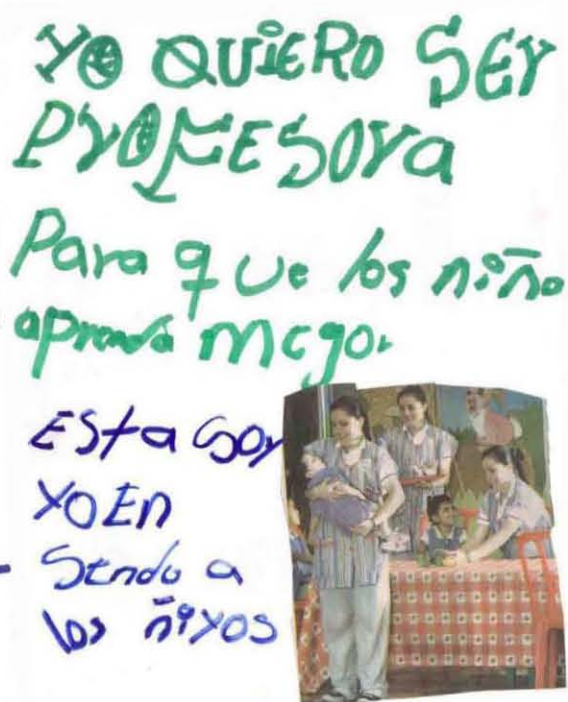 YO QUIERO SER
PROFESORA
Para que los niño
aprenda mejor
ESta Soy
YO En
Sendo a
los niños